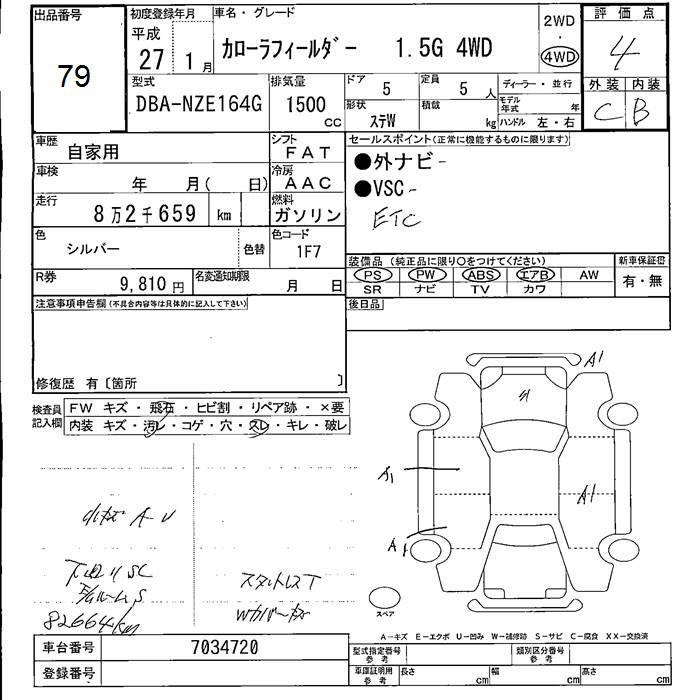 出品番号 初度登録年月 車名・グレード 2WD 評価点
79 平成 27年 1月 カローラフィールダー 1.5G 4WD ・ 4WD 4
型式 排気量 ドア 5 定員 5人 ディーラー・並行 外装 内装
DBA-NZE164G 1500cc 形状 ステW 積載 kg モデル年式 年 C B
ハンドル 左・右
車歴 自家用 シフト FAT セールスポイント(正常に機能するものに限ります)
車検 年 月( 日) 冷房 AAC ●外ナビ-
走行 8万2千659 km 燃料 ガソリン ●VSC-
ETC
色 シルバー 色替 色コード 1F7
装備品 (純正品に限り○をつけてください) 新車保証書
PS PW ABS エアB AW 有・無
SR ナビ TV カワ
R券 9,810円 名変通知期限 月 日
後日品
注意事項申告欄(不具合内容等は具体的に記入して下さい)
修復歴 有〔箇所 〕
検査員記入欄 FW キズ・飛石・ヒビ割・リペア跡・×要
内装 キズ・汚レ・コゲ・穴・スレ・キレ・破レ
A1
A1
A1
A1
小キズ A-U
下回りSC
スタットレスT
Wカバーキズ
82664km
スペア
A-キズ E-エクボ U-凹み W-補修跡 S-サビ C-腐食 XX-交換済
車台番号 7034720 型式指定番号 参考 類別区分番号 参考
登録番号 車庫証明用 参考 長さ cm 幅 cm 高さ cm